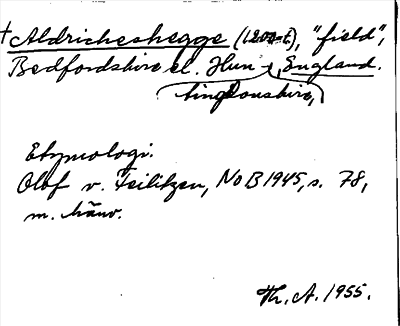 †Aldricheshegge (1200-t.), "field",
Bedfordshire el. Hun-, England.
tingdonshire,
Etymologi.
Olof v. Feilitzen, NoB 1945, s. 78,
m. hänv.
Th. A. 1955.